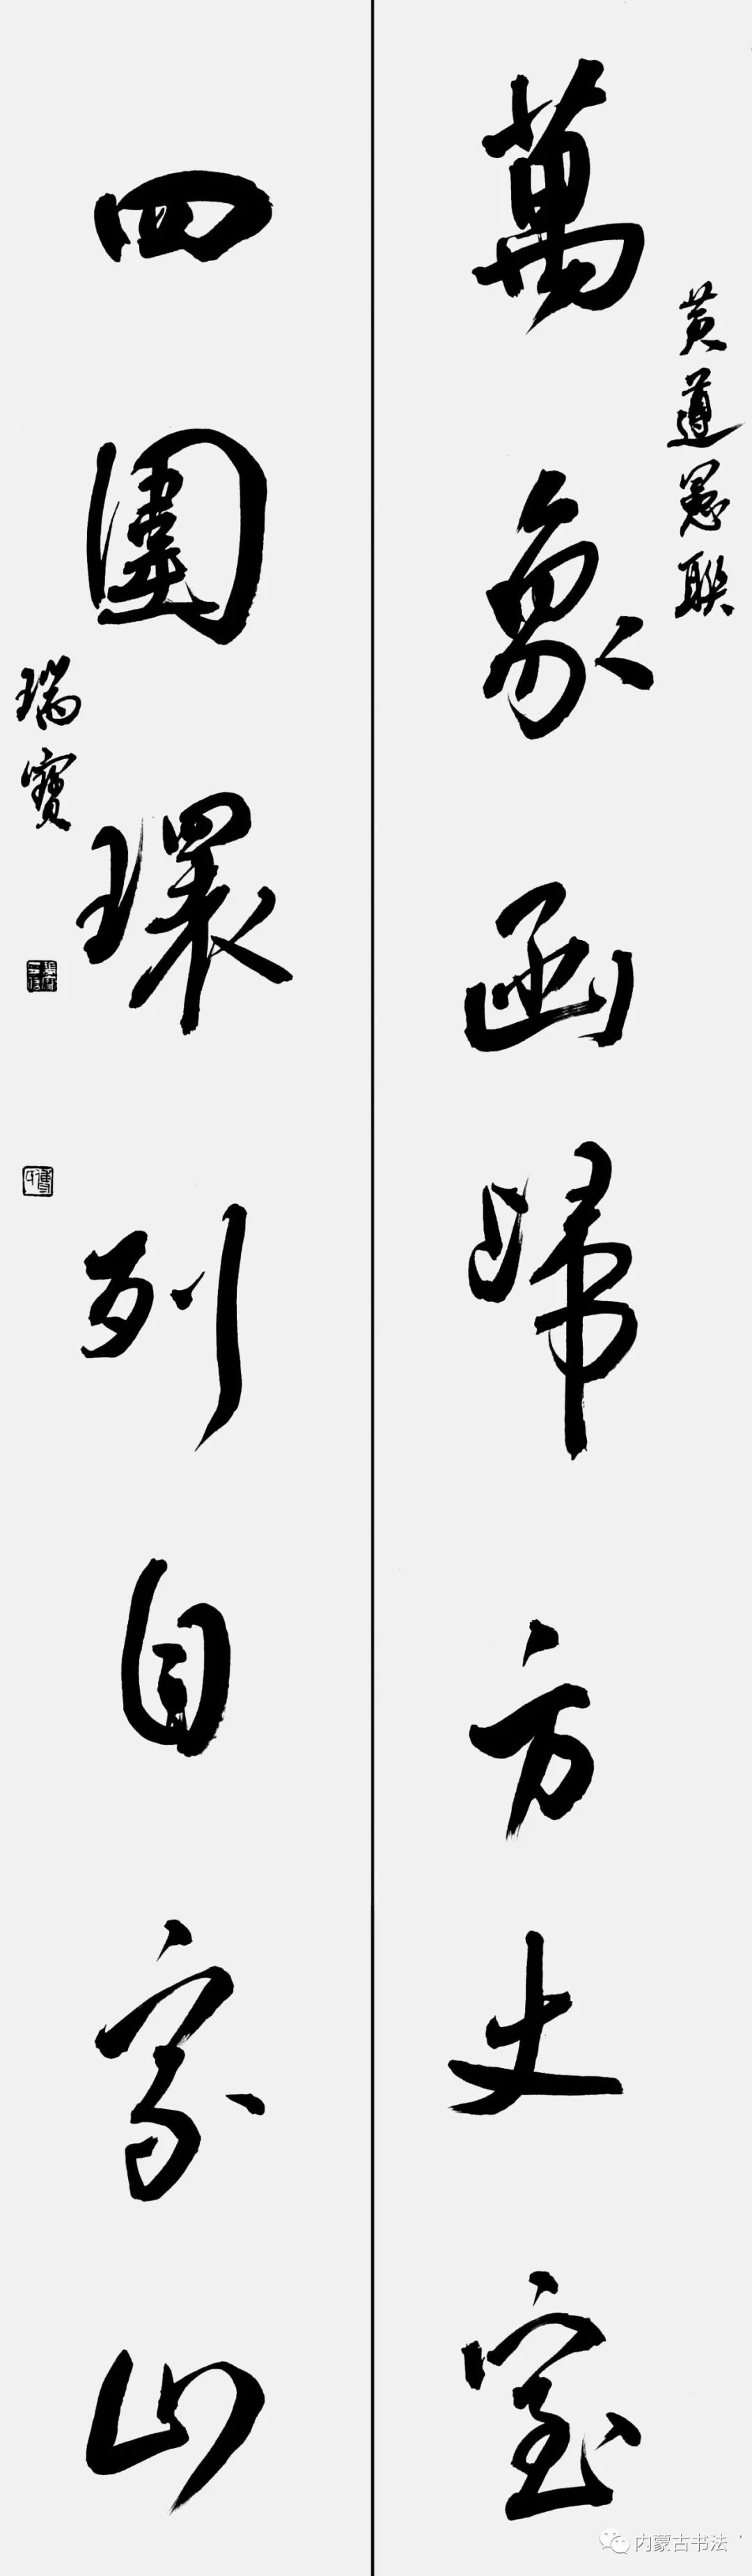 黄遵憲联
萬象函歸方丈室
四圍環列自家山
瑞寶
内蒙古书法